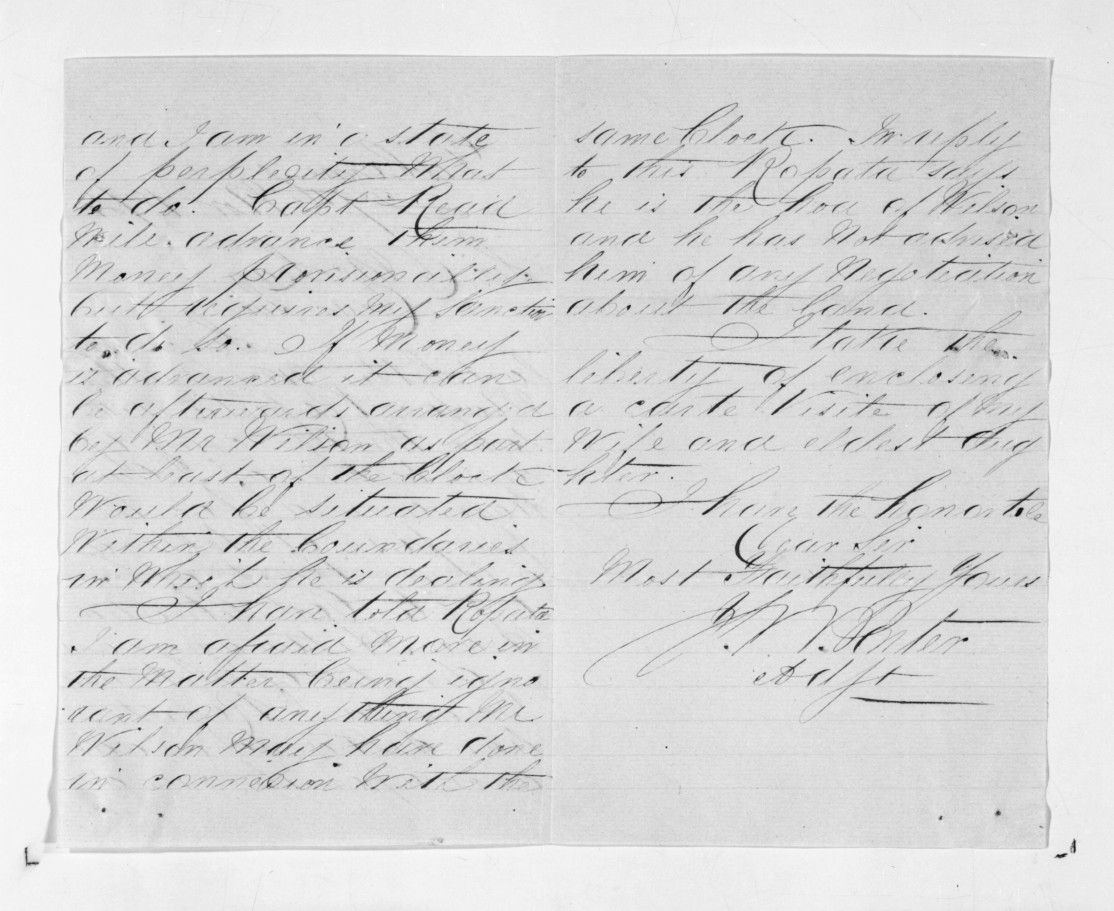 and I am in a state
of perplexity What
to do. Capt Read
Will advance them
Money provisionally
but requires My sanction
to do so. If Money
is advanced it can
be afterwards arranged
by Mr Wilson as part
at least of the block
Would be situated
Within the boundaries
in Which he is dealing
I have told Ropata
I am afraid More in
the Matter being igno
rant of anything Mr
Wilson May have done
in connexion With the
same block. In reply
to this Ropata says
he is the hoa of Wilson
and he has Not advised
him of any Negotiation
about the land.
I take the
liberty of enclosing
a carte Visite of My
Wife and eldest dug
hter.
I have the honor to be
Dear Sir
Most Faithfully Yours
J. W. Porter
Adjt